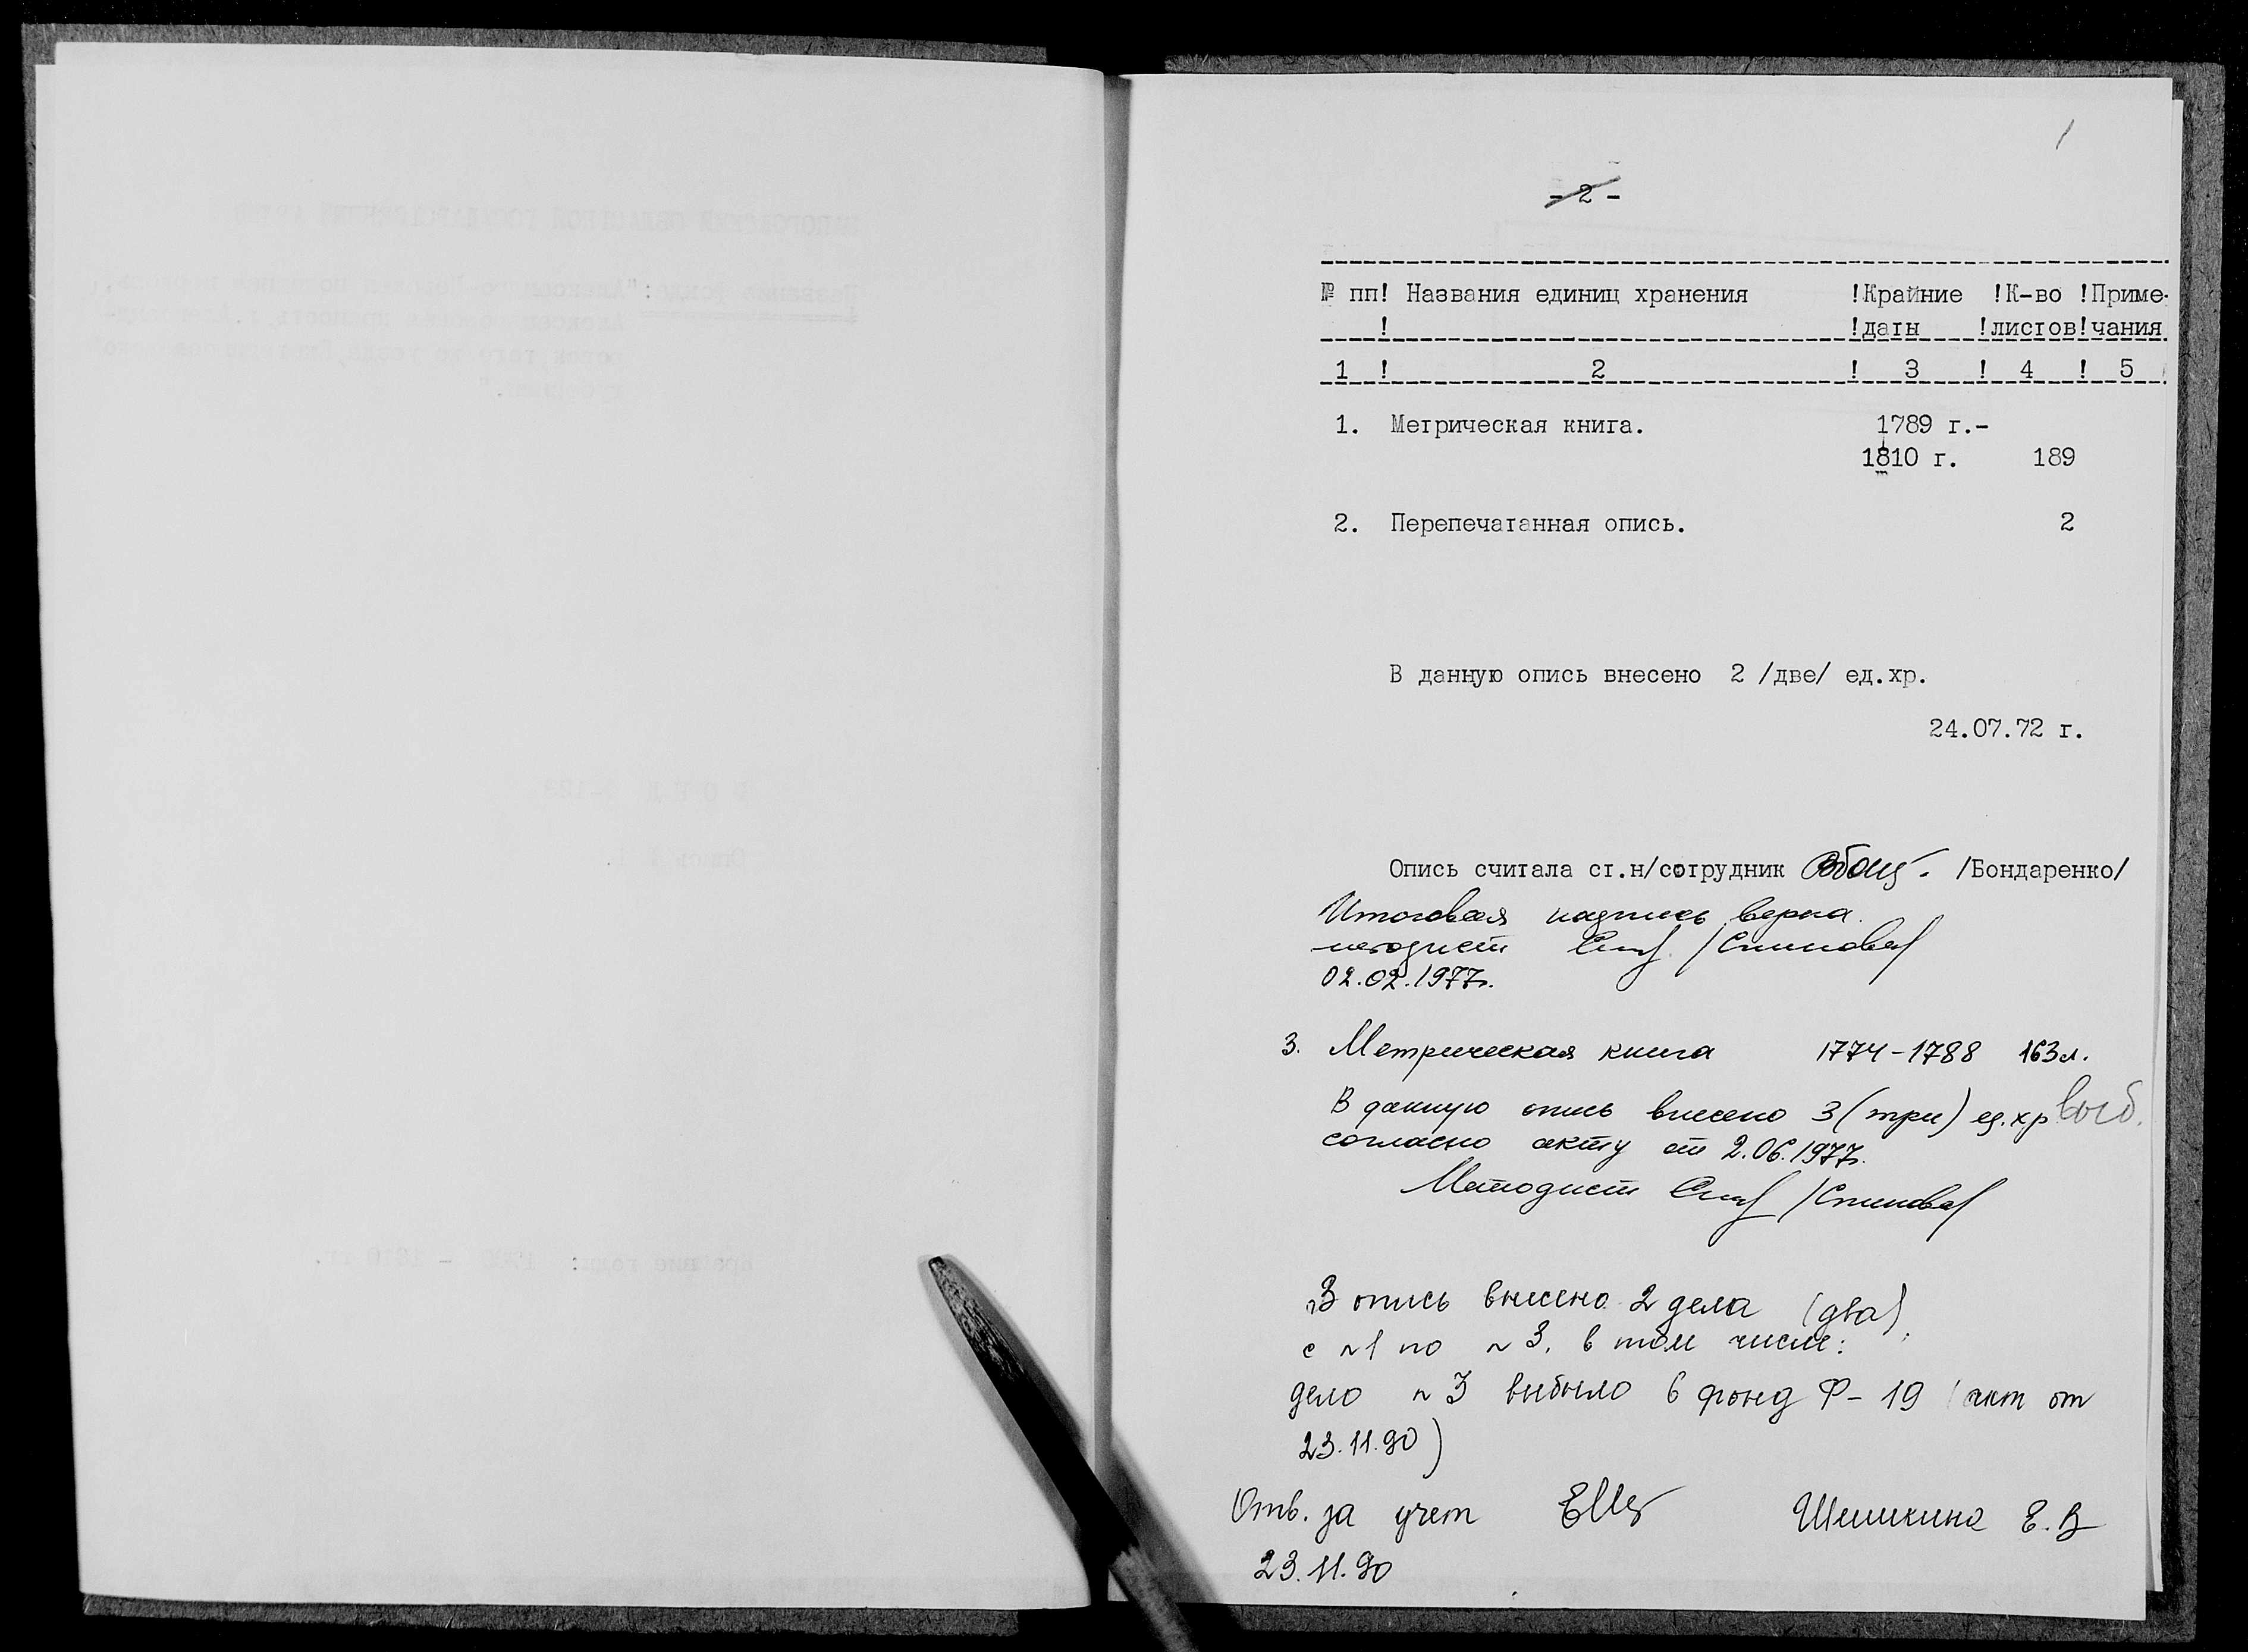 1
- 2 -
№ пп! Названия единиц хранения !Крайние !К-во !Приме-
! !даты !листов!чания
1 ! 2 ! 3 ! 4 ! 5
1. Метрическая книга. 1789 г.-
1810 г. 189
2. Перепечатанная опись. 2
В данную опись внесено 2 /две/ ед.хр.
24.07.72 г.
Опись считала ст.н/сотрудник /Бондаренко/
Итоговая надпись верна.
методист
02.02.1977г.
3. Метрическая книга 1774-1788 163 л.
В данную опись внесено 3 (три) ед.хр выб.
согласно акту от 2.06.1977г.
Методист
В опись внесено 2 дела (два),
с №1 по №3, в том числе:
дело №3 выбыло в фонд Ф-19 (акт от
23.11.90)
Отв. за учет Шишкина Е.В
23.11.90